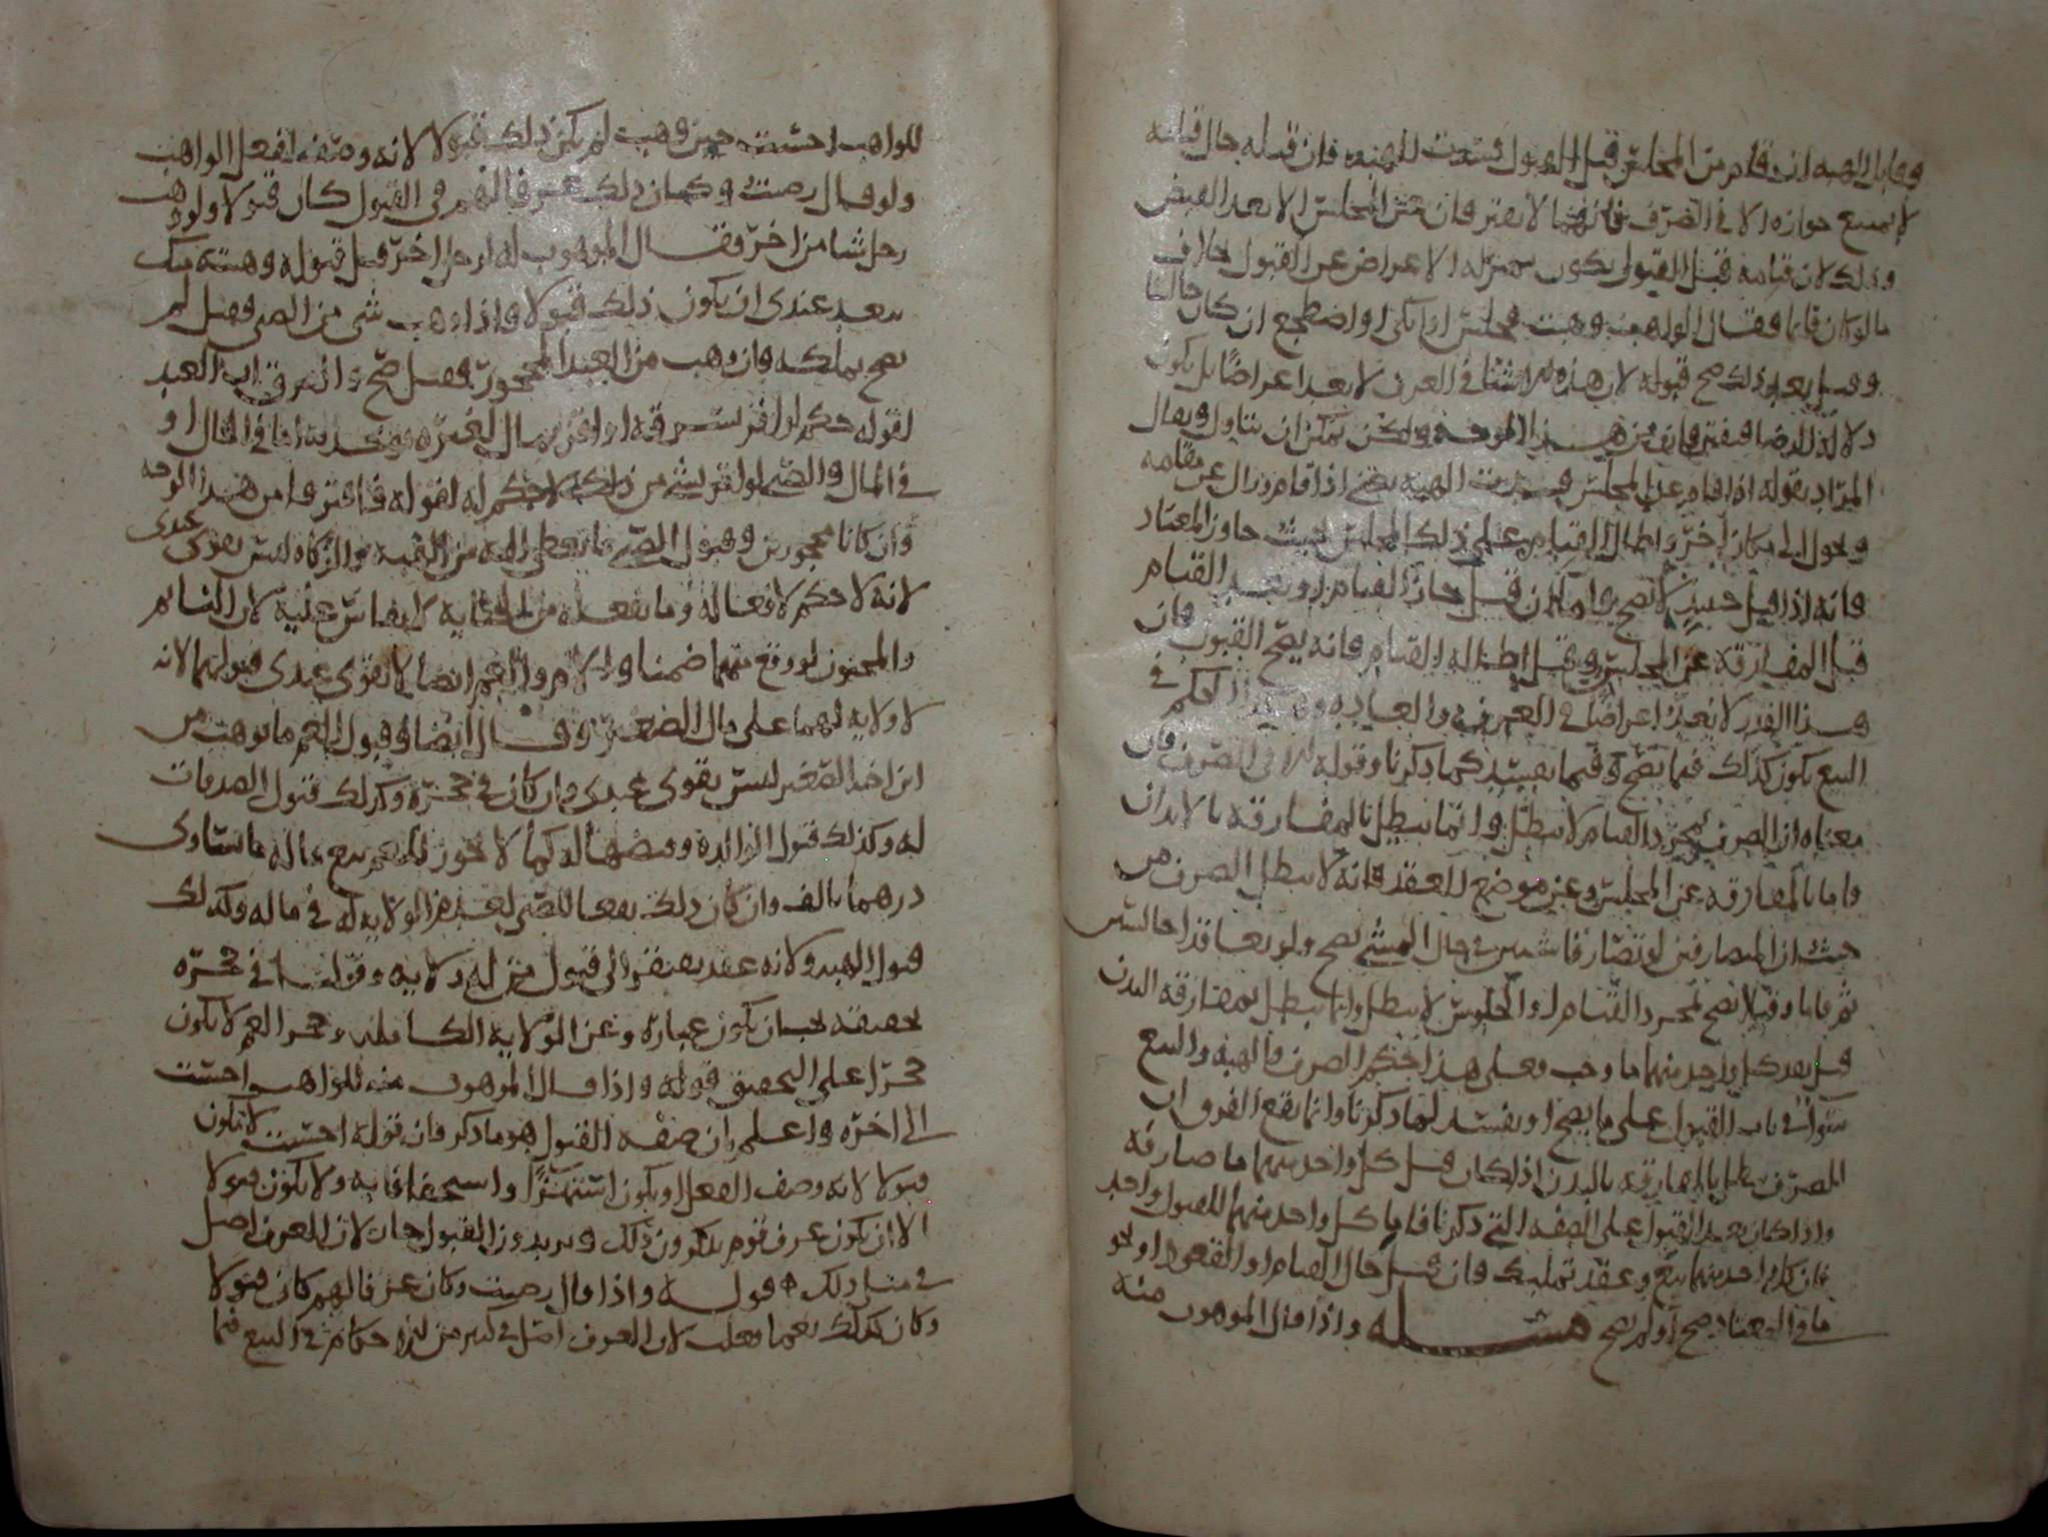 وقابل الهبه ان قام من المجلس قبل القبول فسدت الهبه فان قبله حال قيامه
لا يمنع جوازه الا في الصرف فانهما لا يفترقان عن المجلس الا بعد القبض
وذلك لان قيامه قبل القبول يكون بمنزله الاعراض عن القبول خلاف
ما لو كان قايما فقال الواهب وهبت فجلس او اتكى او اضطجع ان كان جالسا
وقبل بعد ذلك صح قبوله لان هذه الاشيا في العرف لا يعد اعراضا بل يكون
دلاله الرضا فيفترقان من هذا الوجه ولكن يمكن ان يتاول ويقال
المراد بقوله اذا قام عن المجلس فسدت الهبه يعني اذا قام وزال عن مقامه
وتحول الى مكان اخر واطال القيام على ذلك المجلس بحيث جاوز المعتاد
فانه اذا قبل حينيذ لا يصح واما ان قبل حال القيام او بعد القيام
قبل المفارقه عن المجلس وقبل اطاله القيام فانه يصح القبول فان
هذا القدر لا يعد اعراضا في العرف والعاده وهكذا الحكم في
البيع يكون كذلك فيما يصح وفيما يفسد كما ذكرنا وقوله الا في الصرف فان
معناه ان الصرف بمجرد القيام لا يبطل وانما يبطل بالمفارقه بالابدان
واما بالمفارقه عن المجلس وعن موضع العقد فانه لا يبطل الصرف من
حيث ان المتصارفين لو تصارفا ماشيين في حال المشي يصح ولو تعاقدا جالسين
ثم قاما وقبلا يصح بمجرد القيام او الجلوس لا يبطل وانما يبطل بمفارقه البدن
قبل نقد كل واحد منهما ما وجب وعلى هذا حكم الصرف والهبه والبيع
سوا في باب القبول على ما يصح او يفسد لما ذكرنا وانما يقع الفرق ان
الصرف يبطل بالمفارقه بالبدن اذا كان قبل كل واحد منهما ما صارفه
واذا كان بعد القبول على الصفه التي ذكرنا فاما كل واحد منهما للقبول واحد
فان كل واحد منهما بيع وعقد تمليك فان قبل حال القيام او القعود او نحو
ما في المعتاد صح او لم يصح مسئله واذا قال الموهوب منه
للواهب احسنت حين وهبت لم يكن ذلك قبولا لانه وصف لفعل الواهب
ولو قال رضيت وكان ذلك عرفا لهم في القبول كان قبولا ولو وهب
رجل شيا من اخر فقال الموهوب له لرجل اخر قبل قبوله وهبته منك
يبعد عندي ان يكون ذلك قبولا واذا وهب شي من الصبي فقبل لم
يصح تملكه وان وهب من العبد المحجور فقبل صح والفرق ان العبد
لقوله حكم لو اقر بسرقه او اقر بمال لغيره اما في الحال او
في المال والصبي لو اقر بشي من ذلك لا حكم له لقوله فافترقا من هذا الوجه
وان كانا محجورين وقبول الصبي ما يعطى اليه من الهبه والزكاه ليس يقوى عندي
لانه لا حكم لافعاله وما يفعله من الجنايه لا يقاس عليه لان النايم
والمجنون لو وقع منهما ضمنا والام والعم ايضا لا يقوى عندي قبولهما لانه
لا ولايه لهما على مال الصغير وقال ايضا وقبول العم ما يوهب من
ابن اخيه الصغير ليس يقوى عندي وان كان في حجره وكذلك قبول الصدقات
له وكذلك قبول الوالده وقبضها له كما لا يجوز للعم بيع ماله ما يساوي
درهما بالف وان كان ذلك نفعا للصبي لعدم الولايه له في ماله وكذلك
قبول الهبه ولانه عقد يفتقر الى قبول من له ولايه وقولنا في حجره
حقيقه يجب ان يكون عباره عن الولايه الكامله وحجر العم لا يكون
حجرا على التحقيق قوله واذا قال الموهوب منه للواهب احسنت
الى اخره واعلم ان صفه القبول هو ما ذكر فان قوله احسنت لا يكون
قبولا لانه وصف الفعل او يكون استهزا واستخفافا به ولا يكون قبولا
الا ان يكون عرف قوم يذكرون ذلك ويريدون القبول جاز لان العرف اصل
في مثل ذلك قوله واذا قال رضيت وكان عرفا لهم كان قبولا
وكان كذلك لان العرف اصل في كثير من الاحكام في البيع فيما